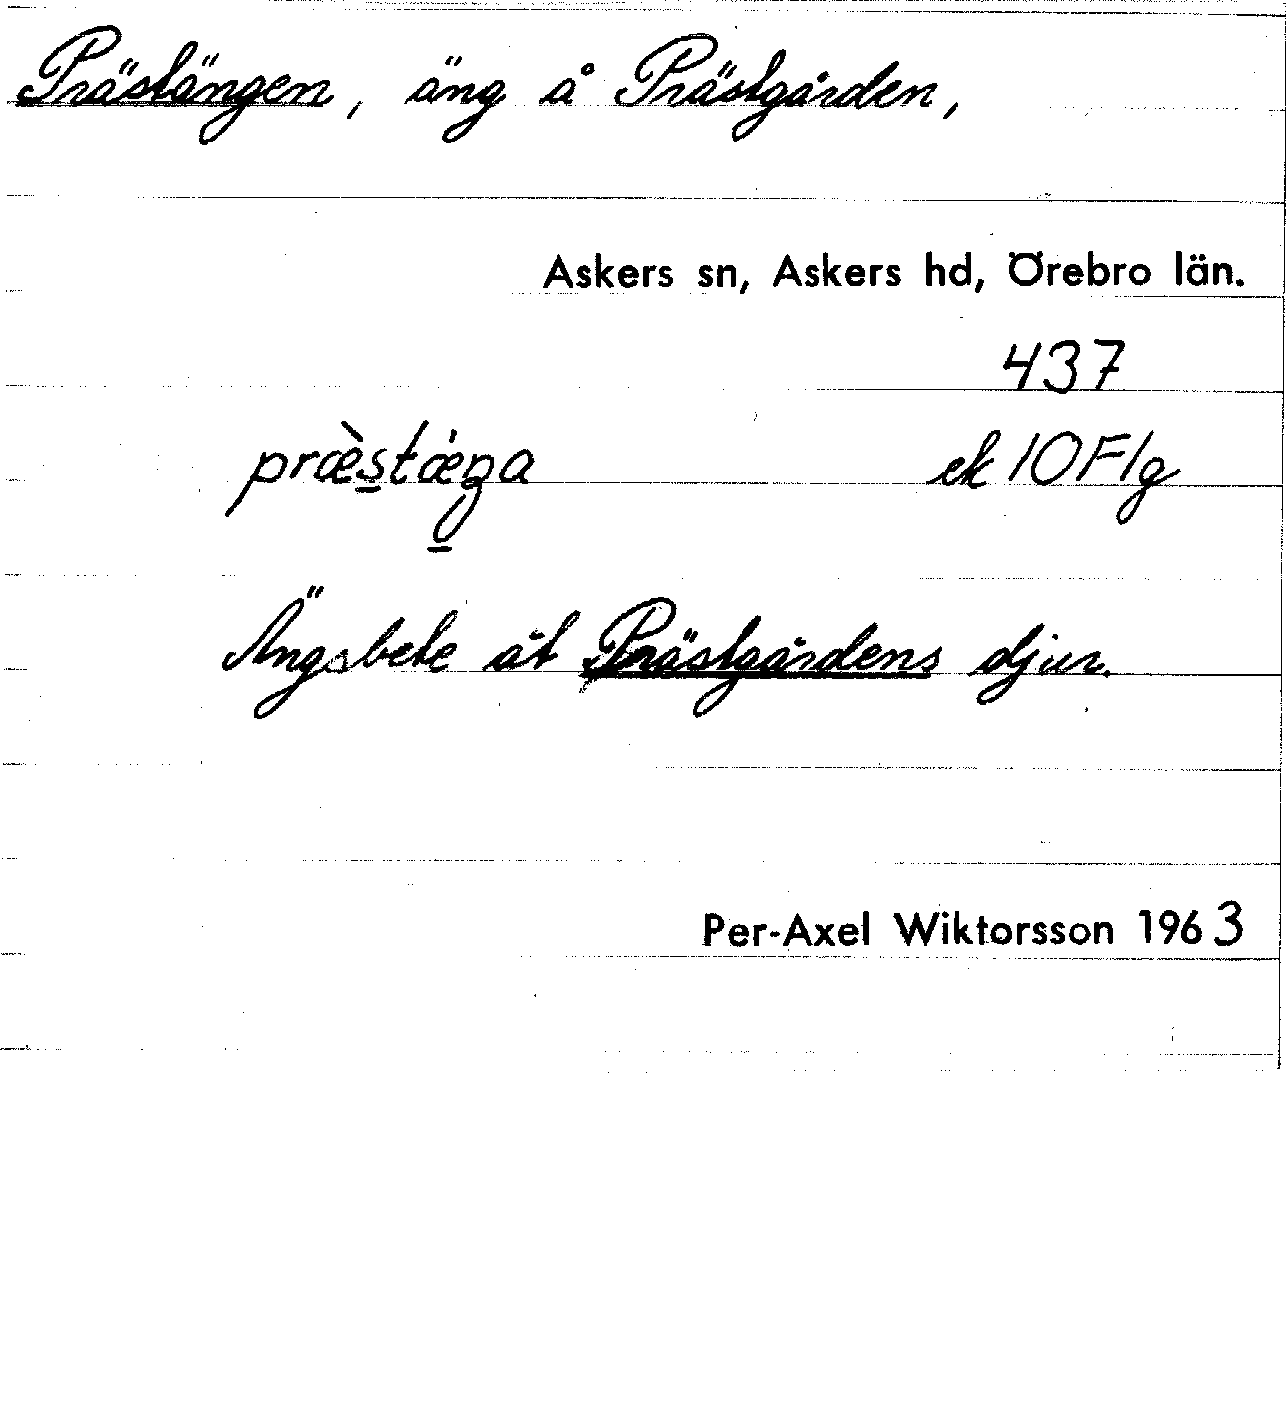 Prästängen, äng å Prästgården,
Askers sn, Askers hd, Örebro län.
437
præ̀stǽŋa
ek 10F1g
Ängsbete åt Prästgårdens djur.
Per-Axel Wiktorsson 1963